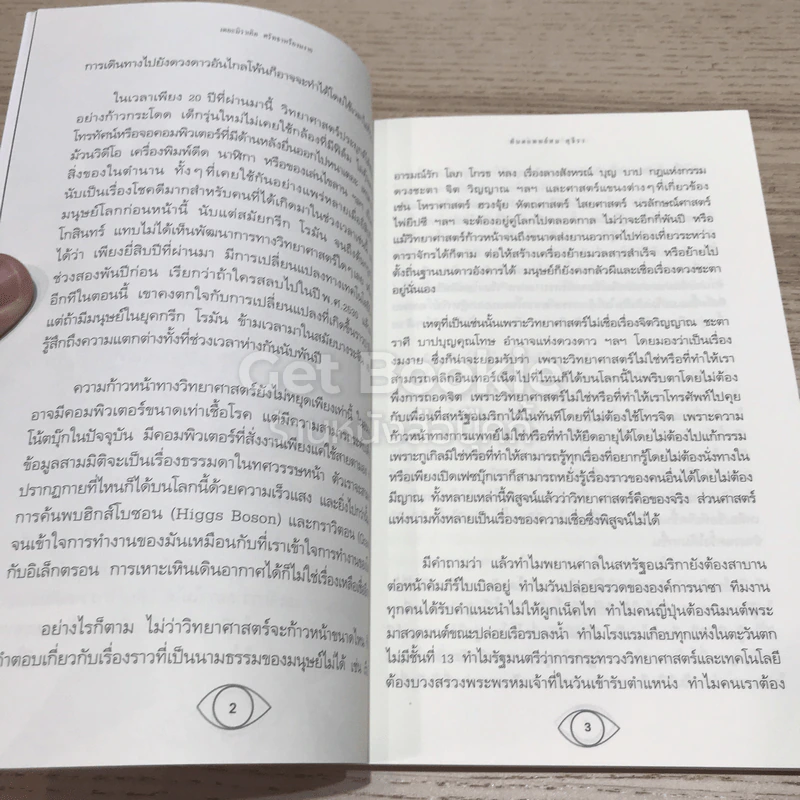 เดอะมิราเคิล
การเดินทางไปยังดวงดาวอันไกลโพ้นก็อาจจะทำได้โดยใช้
ในเวลาเพียง 20 ปีที่ผ่านมานี้ วิทยาศาสตร์
อย่างก้าวกระโดด เด็กรุ่นใหม่ไม่เคยใช้กล้องที่มีฟิล์ม
โทรทัศน์หรือจอคอมพิวเตอร์ที่มีด้านหลังยื่นออกไป
ม้วนวิดีโอ เครื่องพิมพ์ดีด นาฬิกา หรือของเล่นไขลาน
สิ่งของในตำนาน ทั้งๆ ที่เคยใช้กันอย่างแพร่หลาย
นับเป็นเรื่องโชคดีมากสำหรับคนที่ได้เกิดมาในช่วงเวลา
มนุษย์โลกก่อนหน้านี้ นับแต่สมัยกรีก โรมัน จนถึง
โกสินทร์ แทบไม่ได้เห็นพัฒนาการทางวิทยาศาสตร์
ได้ว่า เพียงยี่สิบปีที่ผ่านมา มีการเปลี่ยนแปลงทาง
ช่วงสองพันปีก่อน เรียกว่าถ้าใครสลบไปในปี พ.ศ.2530
อีกทีในตอนนี้ เขาคงตกใจกับการเปลี่ยนแปลงที่เกิดขึ้น
แต่ถ้ามีมนุษย์ในยุคกรีก โรมัน ข้ามเวลามาในสมัย
รู้สึกถึงความแตกต่างทั้งที่ช่วงเวลาห่างกันนับพันปี
ความก้าวหน้าทางวิทยาศาสตร์ยังไม่หยุดเพียงเท่านี้
อาจมีคอมพิวเตอร์ขนาดเท่าเชื้อโรค แต่มีความสามารถ
โน้ตบุ๊กในปัจจุบัน มีคอมพิวเตอร์ที่สั่งงานเพียงแค่ใช้สายตา
ข้อมูลสามมิติจะเป็นเรื่องธรรมดาในทศวรรษหน้า ตัวเรา
ปรากฏกายที่ไหนก็ได้บนโลกนี้ด้วยความเร็วแสง และยิ่งไปกว่านั้น
การค้นพบฮิกส์โบซอน (Higgs Boson) และกราวิตอน
จนเข้าใจการทำงานของมันเหมือนกับที่เราเข้าใจการทำงาน
กับอิเล็กตรอน การเหาะเหินเดินอากาศได้ก็ไม่ใช่เรื่องเหลือเชื่อ
อย่างไรก็ตาม ไม่ว่าวิทยาศาสตร์จะก้าวหน้าขนาดไหน
คำตอบเกี่ยวกับเรื่องราวที่เป็นนามธรรมของมนุษย์ไม่ได้ เช่น
2
อารมณ์รัก โลภ โกรธ หลง เรื่องลางสังหรณ์ บุญ บาป กฎแห่งกรรม
ดวงชะตา จิต วิญญาณ ฯลฯ และศาสตร์แขนงต่างๆ ที่เกี่ยวข้อง
เช่น โหราศาสตร์ ฮวงจุ้ย หัตถศาสตร์ ไสยศาสตร์ นรลักษณ์ศาสตร์
ไพ่ยิปซี ฯลฯ จะต้องอยู่คู่โลกไปตลอดกาล ไม่ว่าจะอีกกี่พันปี หรือ
แม้วิทยาศาสตร์ก้าวหน้าจนถึงขนาดส่งยานอวกาศไปท่องเที่ยวระหว่าง
ดาราจักรได้ก็ตาม ต่อให้สร้างเครื่องย้ายมวลสารสำเร็จ หรือย้ายไป
ตั้งถิ่นฐานบนดาวอังคารได้ มนุษย์ก็ยังคงกลัวผีและเชื่อเรื่องดวงชะตา
อยู่นั่นเอง
เหตุที่เป็นเช่นนั้นเพราะวิทยาศาสตร์ไม่เชื่อเรื่องจิตวิญญาณ ชะตา
ราศี บาปบุญคุณโทษ อำนาจแห่งดวงดาว ฯลฯ โดยมองว่าเป็นเรื่อง
งมงาย ซึ่งก็น่าจะยอมรับว่า เพราะวิทยาศาสตร์ไม่ใช่หรือที่ทำให้เรา
สามารถคลิกอินเทอร์เน็ตไปที่ไหนก็ได้บนโลกนี้ในพริบตาโดยไม่ต้อง
พึ่งการถอดจิต เพราะวิทยาศาสตร์ไม่ใช่หรือที่ทำให้เราโทรศัพท์ไปคุย
กับเพื่อนที่สหรัฐอเมริกาได้ในทันทีโดยที่ไม่ต้องใช้โทรจิต เพราะความ
ก้าวหน้าทางการแพทย์ไม่ใช่หรือที่ทำให้ยืดอายุได้โดยไม่ต้องไปแก้กรรม
เพราะกูเกิลมิใช่หรือที่ทำให้สามารถรู้ทุกเรื่องที่อยากรู้โดยไม่ต้องนั่งทางใน
หรือเพียงเปิดเฟซบุ๊กเราก็สามารถหยั่งรู้เรื่องราวของคนอื่นได้โดยไม่ต้อง
มีญาณ ทั้งหลายเหล่านี้พิสูจน์แล้วว่าวิทยาศาสตร์คือของจริง ส่วนศาสตร์
แห่งนามทั้งหลายเป็นเรื่องของความเชื่อซึ่งพิสูจน์ไม่ได้
มีคำถามว่า แล้วทำไมพยานศาลในสหรัฐอเมริกายังต้องสาบาน
ต่อหน้าคัมภีร์ไบเบิลอยู่ ทำไมวันปล่อยจรวดขององค์การนาซา ทีมงาน
ทุกคนได้รับคำแนะนำไม่ให้ผูกเน็คไท ทำไมคนญี่ปุ่นต้องนิมนต์พระ
มาสวดมนต์ขณะปล่อยเรือรบลงน้ำ ทำไมโรงแรมเกือบทุกแห่งในตะวันตก
ไม่มีชั้นที่ 13 ทำไมรัฐมนตรีว่าการกระทรวงวิทยาศาสตร์และเทคโนโลยี
ต้องบวงสรวงพระพรหมเจ้าที่ในวันเข้ารับตำแหน่ง ทำไมคนเราต้อง
3
Get Bookie